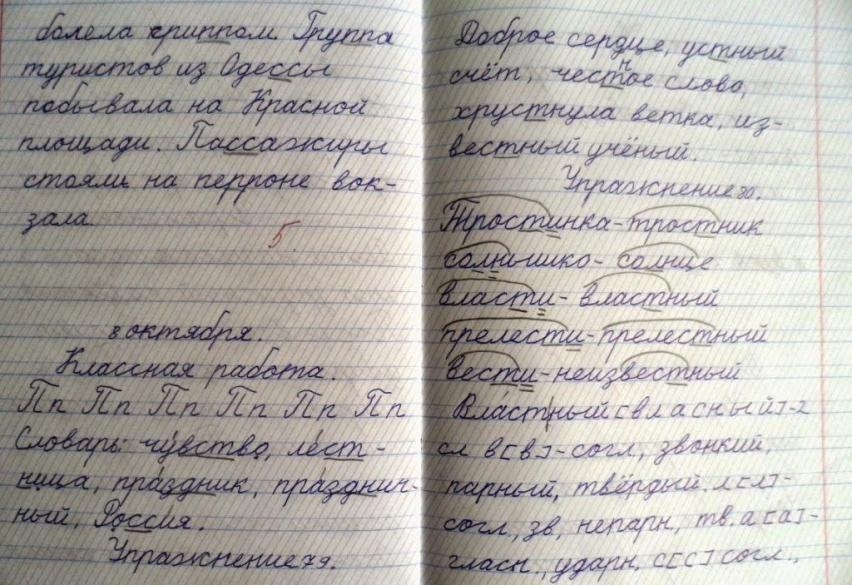 болела гриппом. Группа
туристов из Одессы
побывала на Красной
площади. Пассажиры
стояли на перроне вок-
зала.
5
8 октября.
Классная работа.
Пп Пп Пп Пп Пп Пп
Словарь: чувство, лест-
ница, праздник, празднич-
ный, Россия.
Упражнение 79.
Доброе сердце, устный
счёт, честное слово,
хрустнула ветка, из-
вестный учёный.
Упражнение 80.
Тростинка-тростник
солнышко-солнце
власти-властный
прелести-прелестный
вести-неизвестный
Властный [в л а с н ы й]-2
сл в[в]-согл, звонкий,
парный, твёрдый. л[л]-
согл., зв, непарн, тв. а[а]-
гласн., ударн, с[с] согл.,